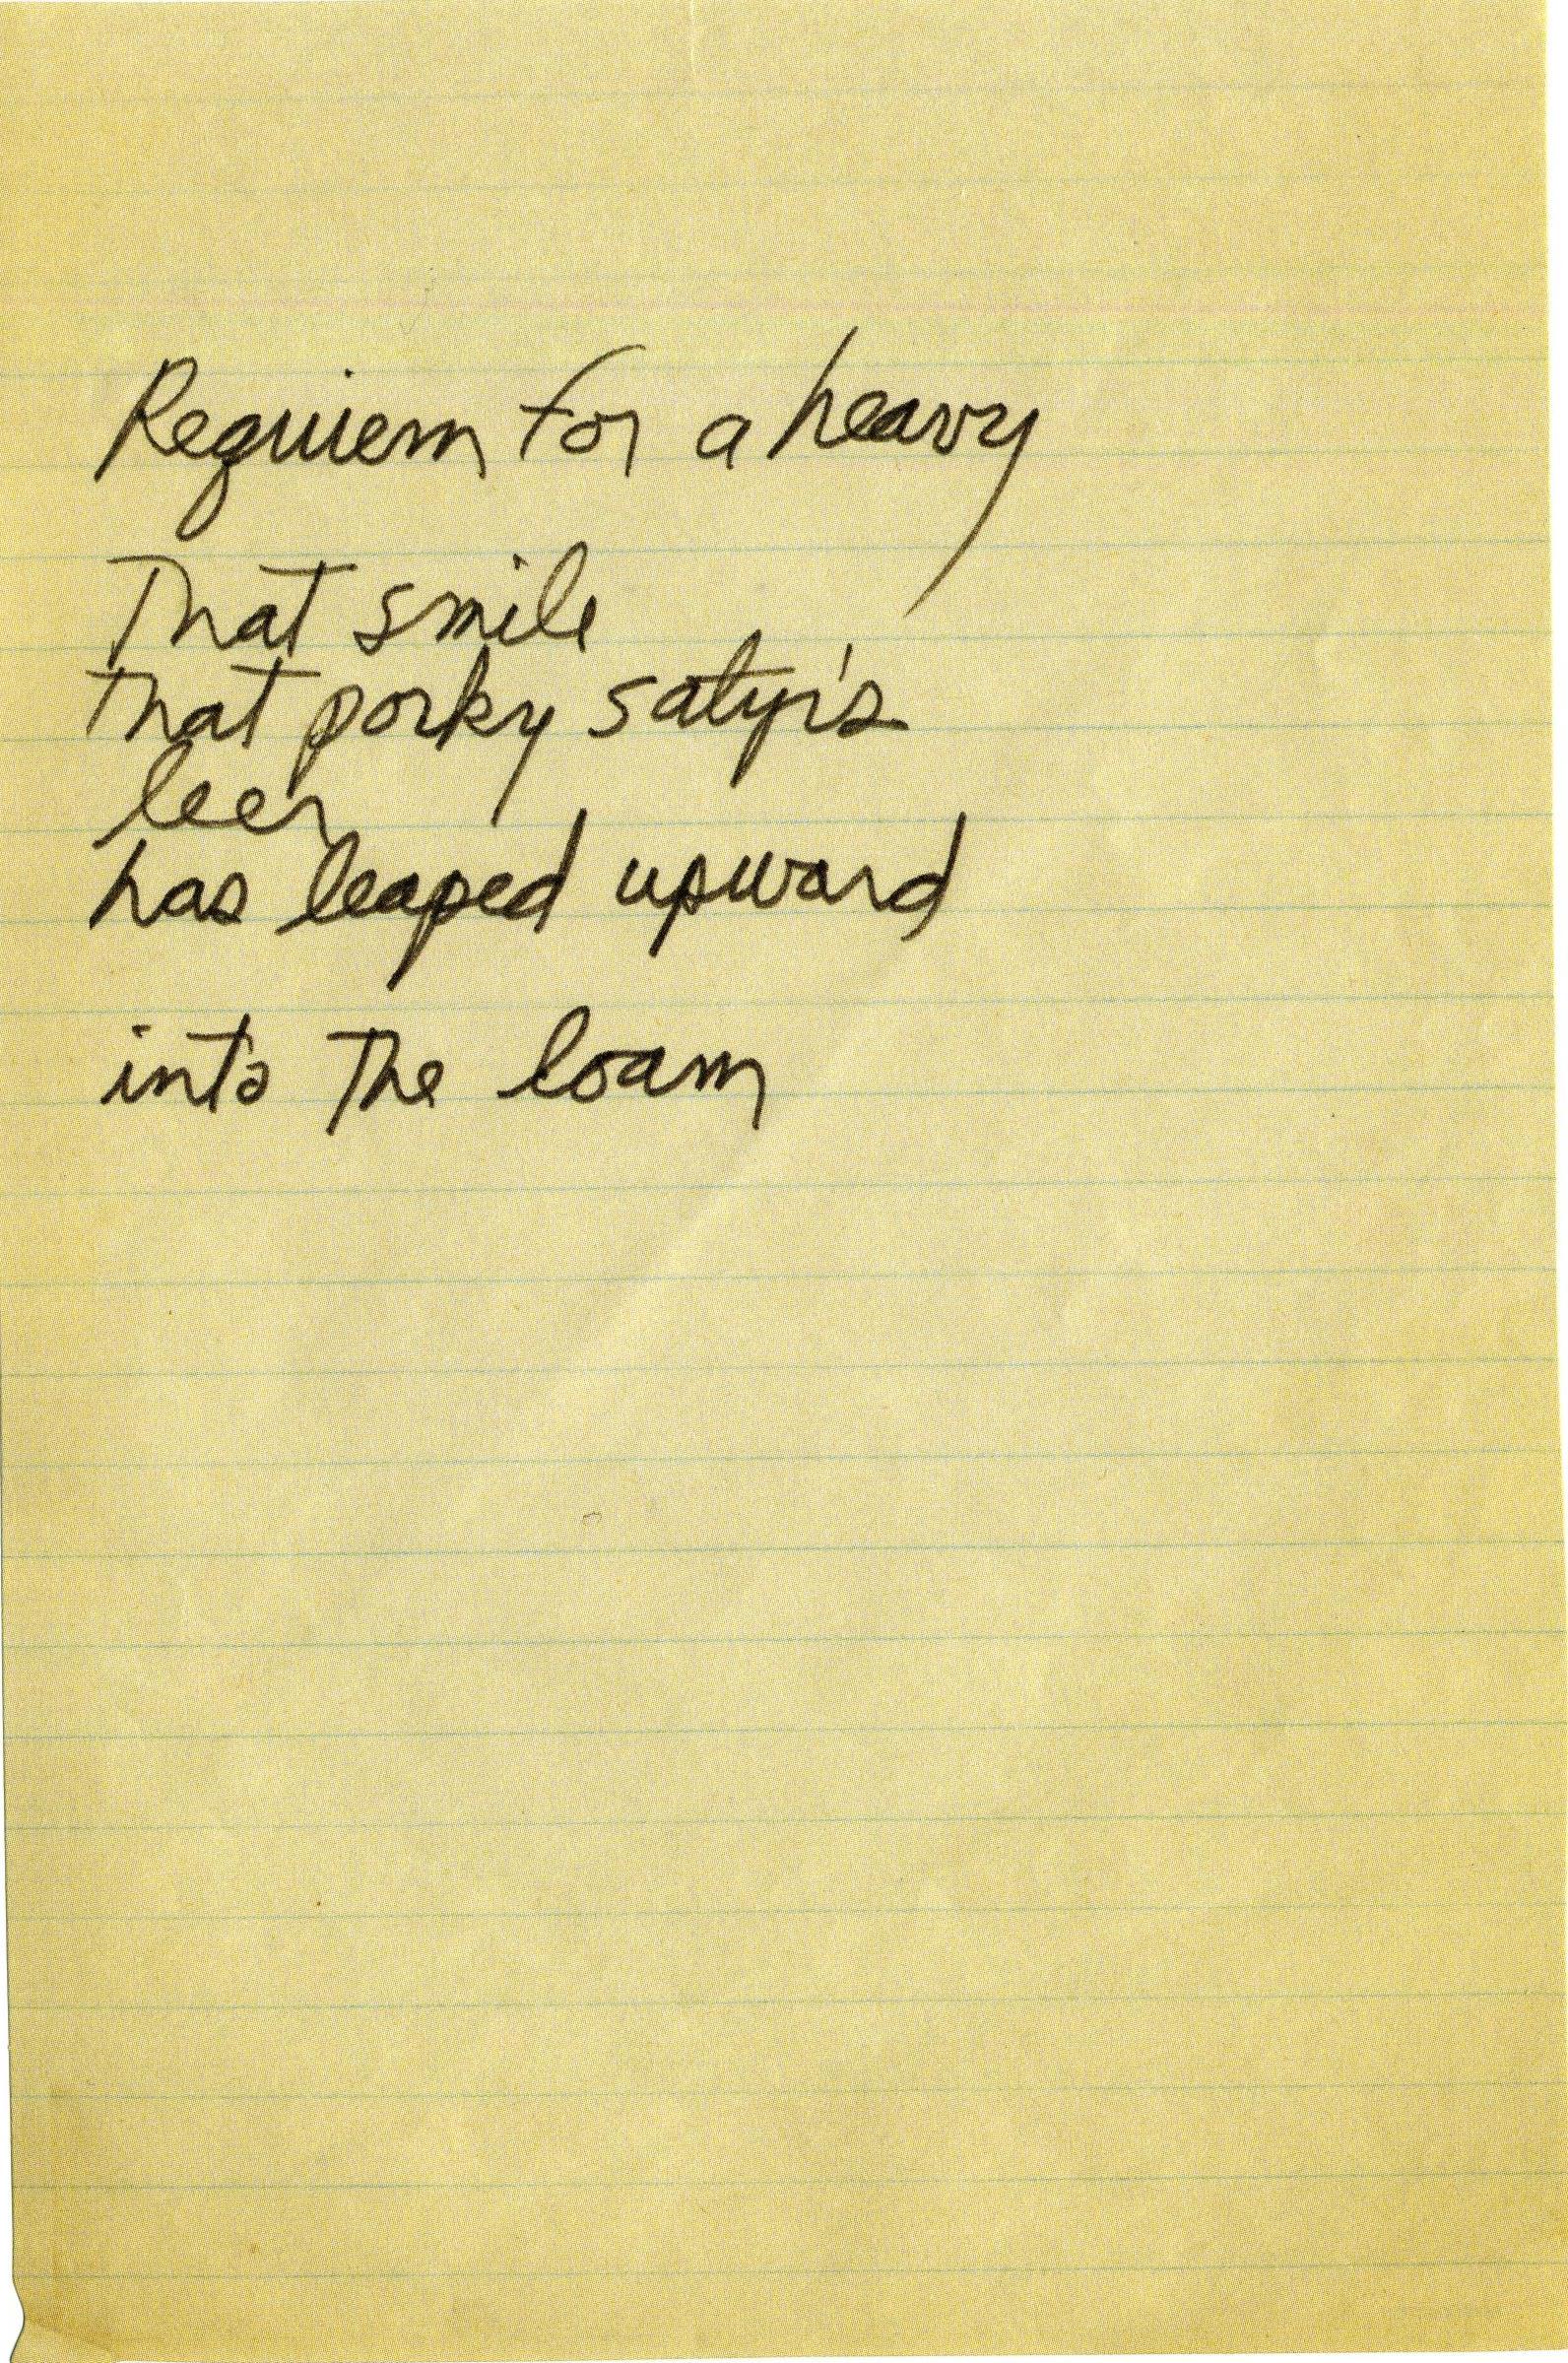 Requiem for a heavy
That smile
that porky satyr's
leer
has leaped upward
into the loam